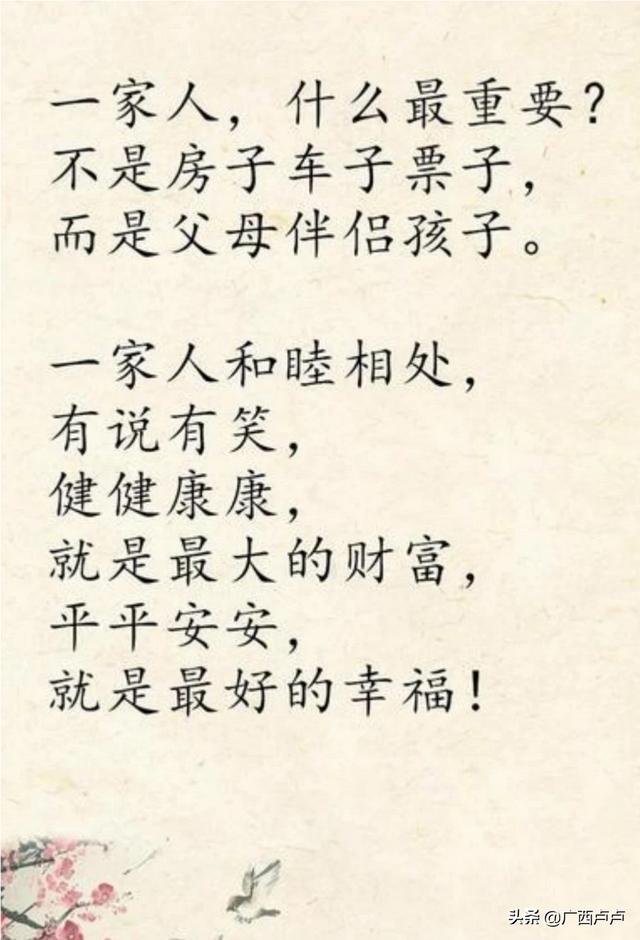 一家人，什么最重要？
不是房子车子票子，
而是父母伴侣孩子。
一家人和睦相处，
有说有笑，
健健康康，
就是最大的财富，
平平安安，
就是最好的幸福！
头条 @广西卢卢